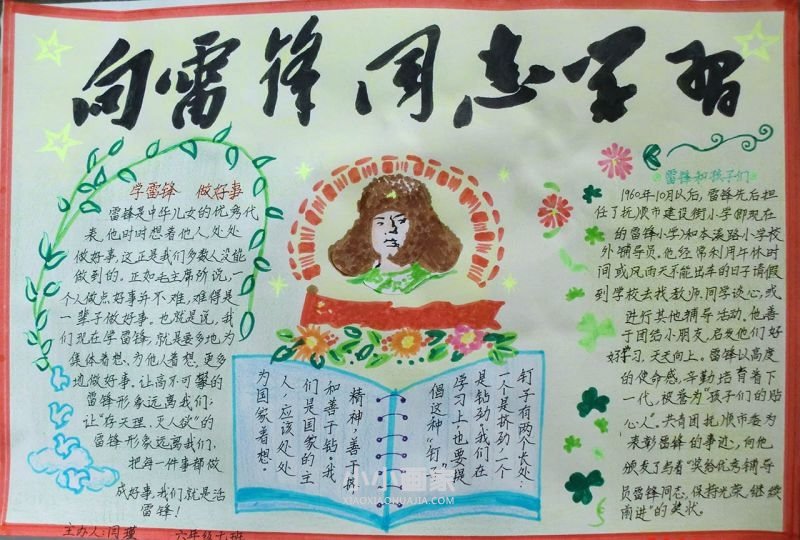 向雷锋同志学习
学雷锋 做好事
雷锋是中华儿女的优秀代
表,他时时想着他人,处处
做好事,这正是我们多数人没能
做到的。正如毛主席所说,一
个人做点好事并不难,难得是
一辈子做好事。也就是说,我
们现在学雷锋,就是要多地为
集体着想,为他人着想,更多
地做好事。让高不可攀的
雷锋形象远离我们;
让“存天理,灭人欲”的
雷锋形象远离我们,
把每一件事都做
成好事,我们就是活
雷锋!
主办人:闫瑾
六年级七班
钉子有两个长处:
一个是挤劲,一个
是钻劲,我们在
学习上,也要提
倡这种“钉子”
精神,善于挤
和善于钻。我
们是国家的主
人,应该处处
为国家着想。
雷锋和孩子们
1960年10月以后,雷锋先后担
任了抚顺市建设街小学(即现在
的雷锋小学)和本溪路小学校
外辅导员。他经常利用午休时
间或风雨天不能出车的日子请假
到学校去找教师、同学谈心,或
进行其他辅导活动。他善
于团结小朋友,启发他们好
好学习,天天向上。雷锋以高度
的使命感,辛勤培育着下
一代,被誉为“孩子们的贴
心人”。共青团抚顺市委为
表彰雷锋的事迹,向他
颁发了写着“奖给优秀辅导
员雷锋同志,保持光荣,继续
前进”的奖状。
小小画家
XIAOXIAOHUAJIA.COM